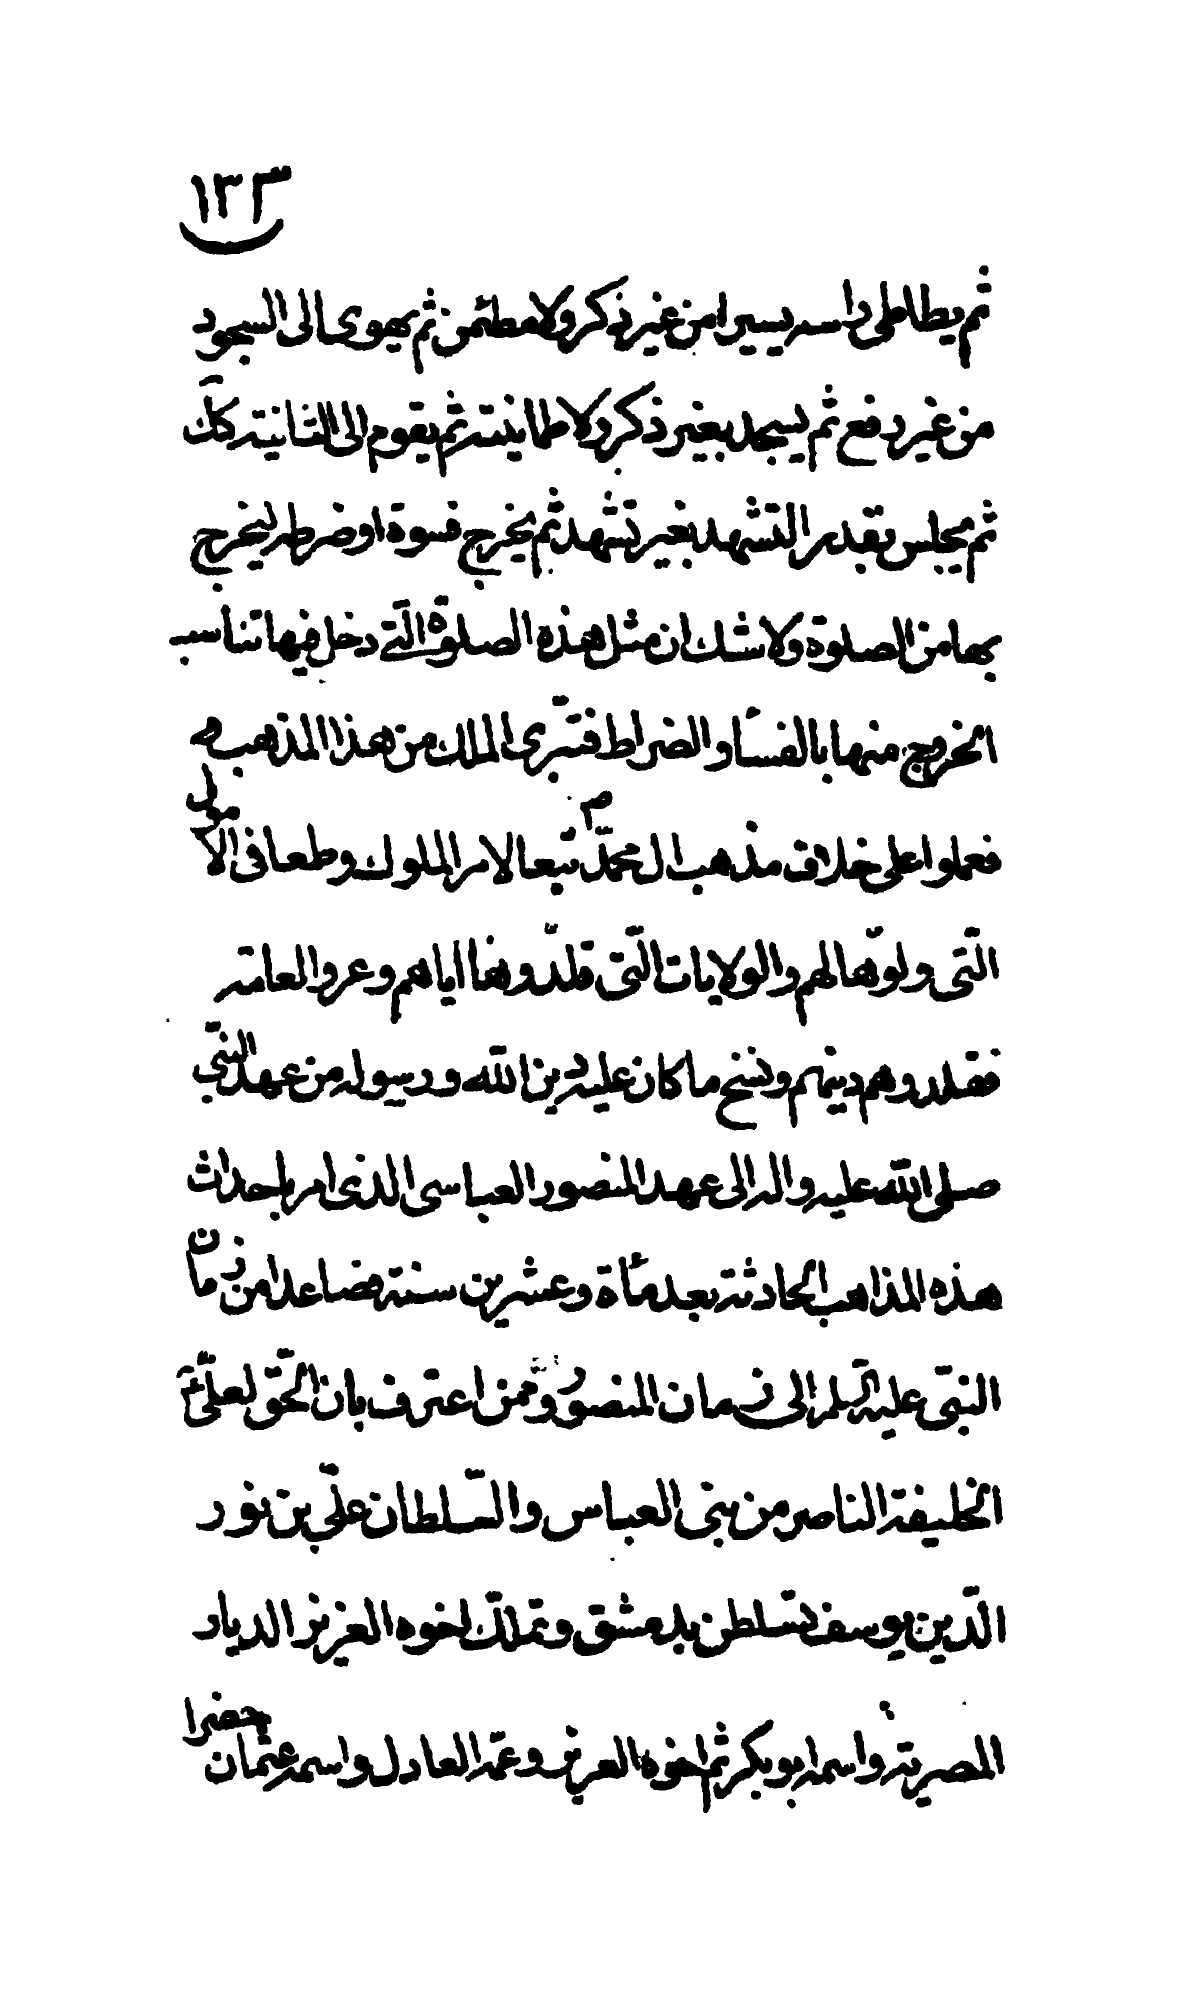 ١٣٣
ثم يطاطى راسه يسيرا من غير ذكر ولا مطئمن ثم يهوى الى السجود
من غير رفع ثم يسجد بغير ذكر ولا طمانينته ثم يقوم الى الثانيته كك
ثم يجلس بقدر التشهد بغير تشهد ثم يخرج فسوة او ضرطه ليخرج
بها من الصلوة ولا شك ان مثل هذه الصلوة الّتي دخل فيها تناسب
الخروج منها بالفسا و الضراط فتبّرى الملك من هذا المذهب
فعملوا على خلاف مذهب ال محمّد ص تبعا لامر الملوك وطعا فى الاموال
التّى ولّوها لهم والولايات الّتى قلّدوها اياهم وعروا لعامته
فقلدوهم دينهم ونسخ ما كان عليه دين اللّه ورسوله من عهد النبّي
صلى اللّه عليه واله الى عهد المنصور العباسى الذى امر باحداث
هذه المذاهب الحادثته بعد مأة وعشرين سنته فضاعدا من زمان
النبىّ عليه السلم الى زمان المنصور وممّن اعترف بان الحّق لعلىّ
الخليفته الناصر من بنى العباس والسّلطان علىّ بن نور
الدّين يوسف تسّلطن بدمشق وتملّك اخوه العزيز الديار
المصريته واسمه ابو بكر ثم اخوه العزيز وعمّه العادل واسمه عثمان حضرا